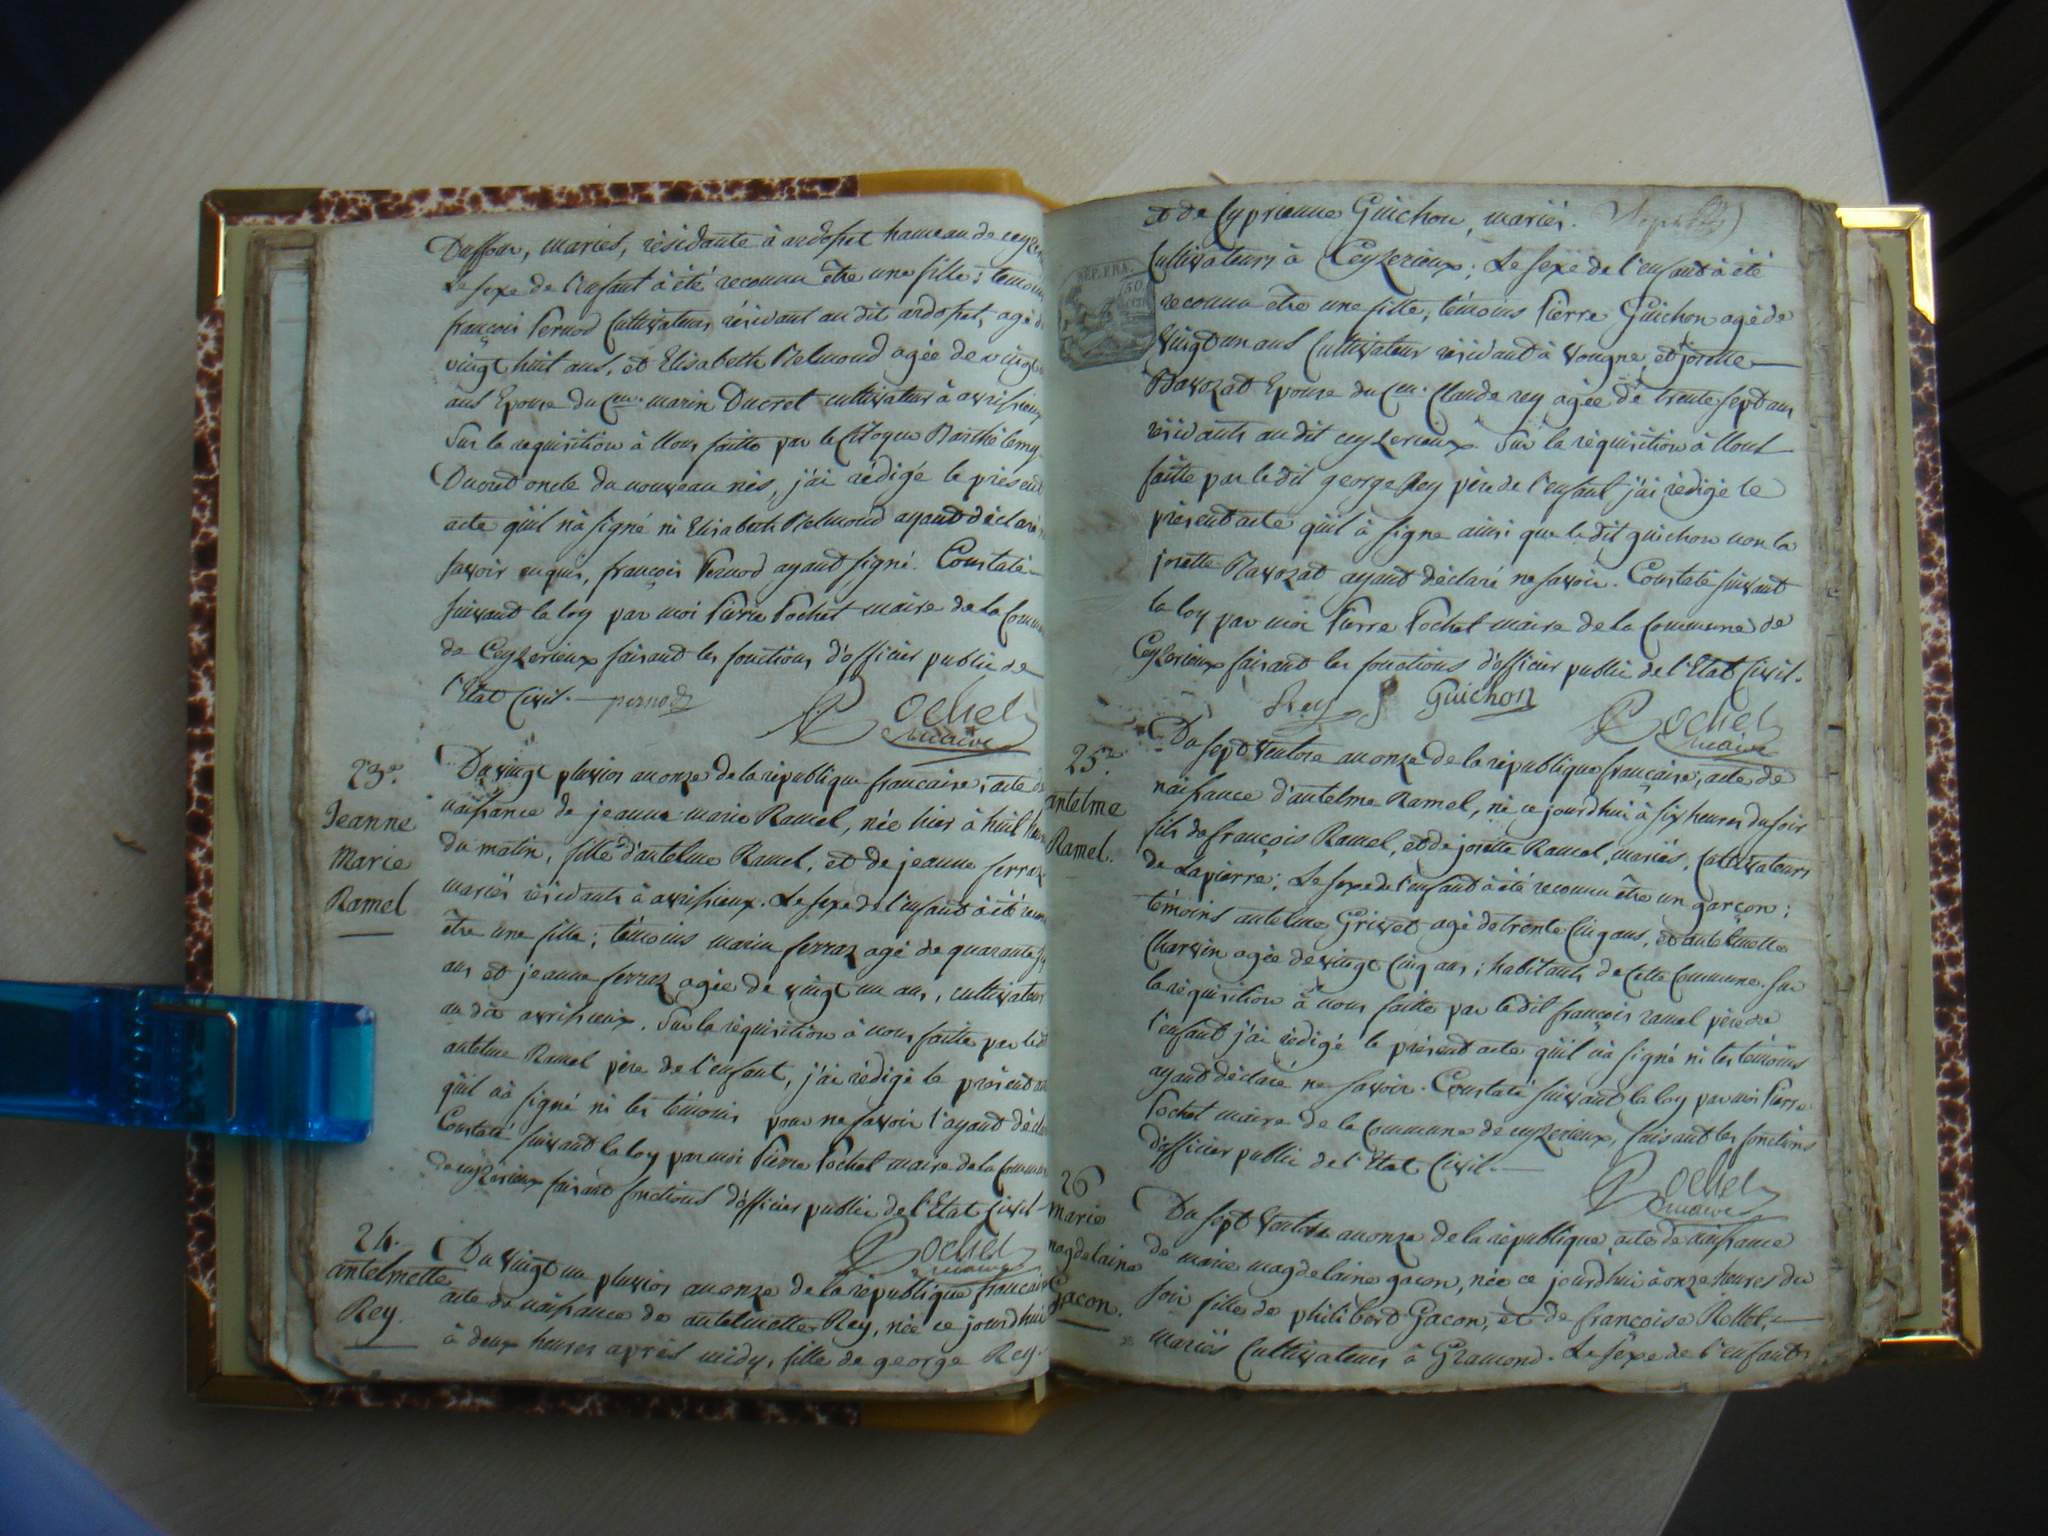 Duffour, mariés, résidante à ardosset hameau de ceyze
Le sexe de l'enfant à été reconnu être une fille; temoins
françois Pernod Cultivateur, résidant au dit ardosset, agé d
vingt huit ans, et Elisabeth Belmond agée de vingt
ans Epouse du Cen. marin Ducret cultivateur à avrissieux
Sur la requisition à Nous faitte par le Citoyen Barthélemy
oncle du nouveau nés, j'ai rédigé le présent
acte qu'il n'a signé ni Elisabeth Belmond ayant déclaré
savoir enquis, françois Pernod ayant signé. Constaté
suivant la loy par moi Pierre Pochet maire de la Commu
de Ceyzerieux faisant les fonctions d'officier public de
l'Etat Civil. pernod
Pochet
maire
23e.
Jeanne
Marie
Ramel
Du vingt pluviose an onze de la république francaise, acte de
naissance de jeanne marie Ramel, née hier à huit heu
du matin, fille d'antelme Ramel, et de jeanne ferraz
mariés résidants à avrissieux. Le sexe de l'enfant à été recon
être une fille; témoins marin ferraz agé de quarante
ans et jeanne ferraz agée de vingt un ans, cultivateurs
au dit avrissieux. Sur la réquisition à nous faitte par ledt
antelme Ramel père de l'enfant, j'ai rédigé le présent ac
qu'il n'a signé ni les témoins pour ne savoir l'ayant décla
Constaté suivant la loy par moi Pierre Pochet maire de la Commun
de ceyzérieux faisant fonctions d'officier public de l'Etat Civil
Pochet
maire
24.
antelmette
Rey.
Du vingt un pluviose an onze de la république francaise
acte de naissance de antelmette Rey, née ce jourdhui
à deux heures après midy, fille de george Rey.
et de Cyprienne Guichon, mariés.
REP. FRA.
50
CEN
Cultivateurs à Ceyzerieux; Le sexe de l'enfant à été
reconnu être une fille; témoins Pierre Guichon agé de
Vingt un ans Cultivateur résidant à Vongne, et josette
Ravozat Epouse du Cen. Claude rey agée de trente sept ans
résidants au dit ceyzerieux. Sur la réquisition à Nous
faitte par le dit george Rey père de l'enfant j'ai rédigé le
présent acte qu'il à signe ainsi que le dit guichon non la
josette Ravozat ayant déclaré ne savoir. Constaté suivant
la loy par moi Pierre Pochet maire de la Commune de
Ceyzerieux faisant les fonctions d'officier public de l'Etat Civil.
Rey Guichon Pochet
maire
25e.
antelme
Ramel.
Du sept Ventose an onze de la république française; acte de
naissance d'antelme Ramel, né ce jourdhui à six heures du soir
fils de françois Ramel, et de josette Ramel, mariés, Cultivateurs
de Lapierre; Le sexe de l'enfant à été reconnu être un garçon;
témoins antelme Grivet agé de trente Cinq ans, et antelmette
Charvin agée de vingt Cinq ans; habitants de Cette Commune. Sur
la réquisition à nous faitte par le dit françois ramel père de
l'enfant j'ai rédigé le présent acte qu'il n'a signé ni les témoins
ayant déclaré ne savoir. Constaté suivant la loy par moi Pierre
Pochet maire de la Commune de ceyzerieux, faisant les fonctions
d'officier public de l'Etat Civil.
Pochet
maire
26
Marie
magdelaine
Gacon.
Du sept Ventose an onze de la république, acte de naissance
de marie magdelaine gacon, née ce jourdhui à onze heures du
soir fille de philibert Gacon, et de françoise
mariés Cultivateurs à Gramond. Le sexe de l'enfant